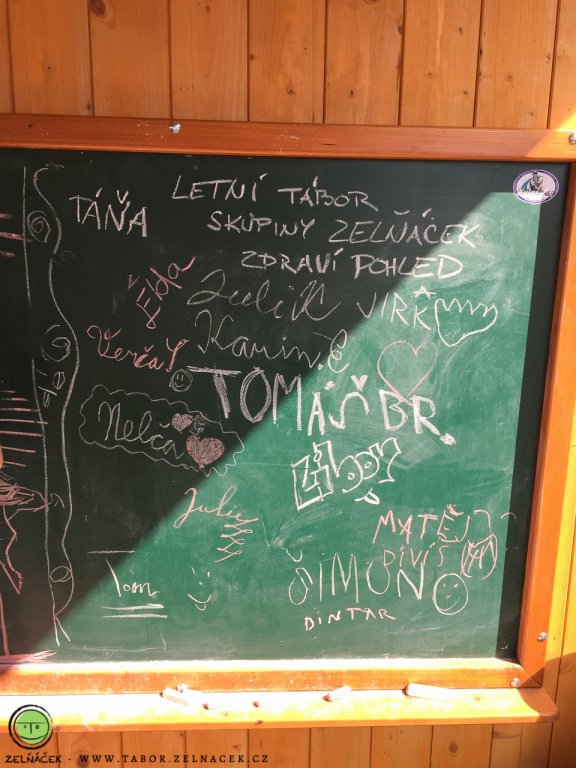 LETNÍ TÁBOR
TÁŇA
SKUPINY ZELŇÁČEK
ZDRAVÍ POHLED
Elda
Julik JIRKA
Verča
Karin.e
TOMÁŠ BR.
Nelča
Libor
Julu
MATĚJ
DIVIŠ
Tom
ŠIMON
DINTAR
ZELŇÁČEK - WWW.TABOR.ZELNACEK.CZ